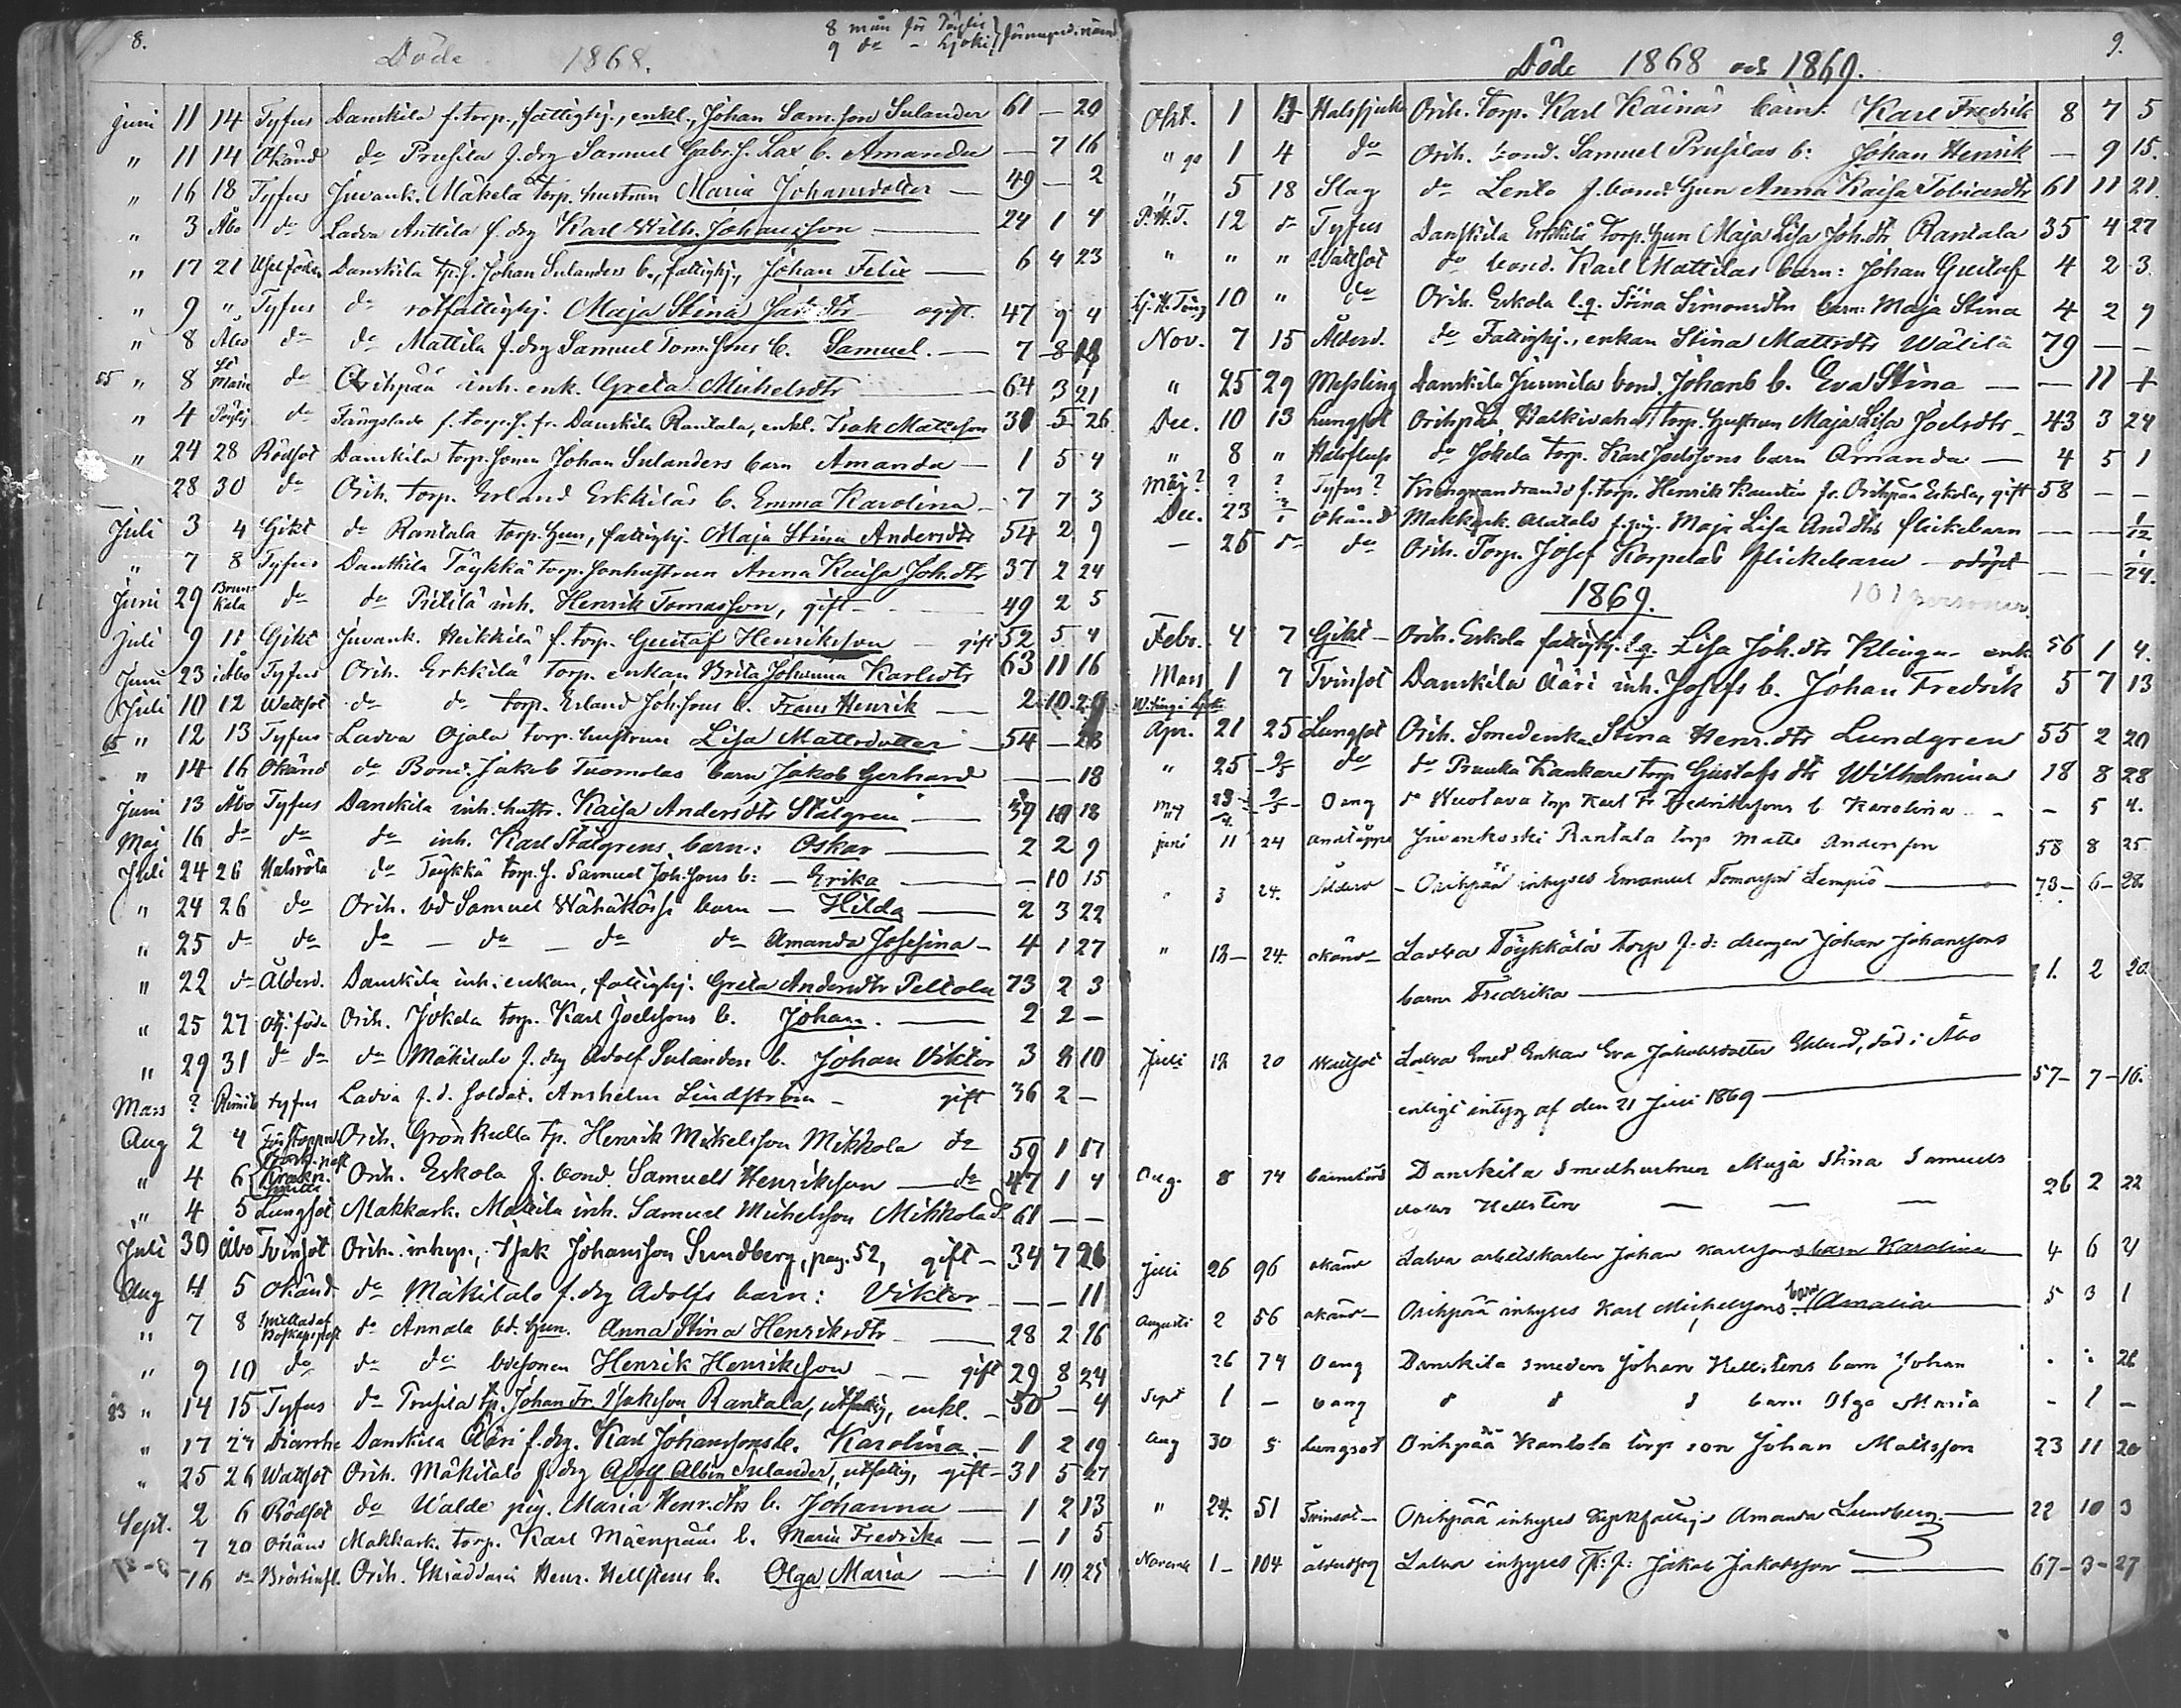 8.
Döde 1868.
8 mån för
9 do - Kjoki
juni 11 14 Tyfus Danskila f. torp., fattighj., enkl., Johan Sam.son Sulander 61 — 20
" 11 14 Okänd do Prusila f. drg Samuel Gabr.s. Lax b. Amanda — 7 16
" 16 18 Tyfus Juvank. Mäkelä torp. hustrun Maria Johansdotter — 49 — 2
" 3 Åbo do Ladva Anttila f. drg Karl Wilh. Johansson — 24 1 4
" 17 21 Danskila tp.s. Johan Sulanders b., fattighj., Johan Felix — 6 4 23
" 9 " Tyfus do rotfattighj. Maja Stina ogift. 47 9 4
" 8 Åbo do do Mattila f. drg Samuel Tom.sons b. Samuel. — 7 8
55 " 8 St Marie do Orihpää inh. enk. Greta Michelsdtr 64 3 21
" 4 do f. torp.s. fr. Danskila Rantala, enkl. Isak Mattsson 31 5 26
" 24 28 Rödsot Danskila torp.sonen Johan Sulanders barn Amanda — 1 5 4
28 30 do Orih. torp. Erland Erkkiläs b. Emma Karolina — 7 7 3
Juli 3 4 Gikt do Rantala torp. hun, fattighj. Maja Stina Andersdtr 54 2 9
" 7 8 Tyfus Danskila Töykkä torp. sonhustrun Anna Kaisa Joh.dtr 37 2 24
Juni 29 do do Pietilä inh. Henrik Tomasson, gift — 49 2 5
juli 9 11 Gikt Juvank. Heikkilä f. torp. Gustaf Henriksson — gift 52 5 4
Juni 23 i Åbo Tyfus Orih. Erkkilä torp. enkan Brita Johanna Karlsdtr 63 11 16
Juli 10 12 Wattsot do do torp. Erland Joh.sons b. Frans Henrik — 2 10 29
65 " 12 13 Tyfus Ladva Ojala torp. hustrun Lisa Mattsdotter 54 — 28
" 14 16 Okänd do Bond. Jakob Tuomolas barn Jakob Gerhard — — 18
Juni 13 Åbo Tyfus Danskila inh. hustr. Kaisa Andersdtr Stålgren — 39 10 18
Maj 16 do do do inh. Karl Stålgrens barn: Oskar — 2 2 9
Juli 24 26 Halsröta do Töykkä torp. s. Samuel Joh.sons b: — Erika — 10 15
" 24 26 do Orih. bd Samuel barn — Hilda — 2 3 22
" 25 do do do — do — do do Amanda Josefina — 4 1 27
" 22 do Ålderd. Danskila inh. enkan, fattighj. Greta Andersdtr Peltola 73 2 3
" 25 27 Otj. föda Orih. Jokela torp. Karl Joelssons b. Johan. — 2 2 —
" 29 31 do do do Mäkitalo f. drg Adolf Sulanders b. Johan Viktor 3 8 10
Mars ? tyfus Ladva f. d. soldat. Anshelm Lindström — gift 36 2 —
Aug 2 4 Orih. Grönkulla tp. Henrik Mikelsson Mikkola do 59 1 17
" 4 6 Orih. Eskola f. bond. Samuel Henriksson — do 47 1 4
" 4 5 Lungsot Makkark. Mattila inh. Samuel Michelsson Mikkola do 61 — —
Juli 30 Åbo Tvinsot Orih. inhys., Isak Johansson Sundberg, pag. 52, gift — 34 7 26
Aug 4 5 okänd do Mäkitalo f. drg Adolfs barn: Viktor — — 11
" 7 8 do Annala bd. hun. Anna Stina Henriksdtr — 28 2 26
" 9 10 do do do bdesonen Henrik Henriksson — gift 29 8 24
83 " 14 15 Tyfus do Prusila tp. Johan Fr. Isaksson Rantala, utfattig, enkl. — 50 — 4
" 17 24 Diarrhe Danskila Ääri f. drg. Karl Johanssons b. Karolina. — 1 2 19
" 25 26 Wattsot Orih. Mäkitalo f. drg Adolf Albin Sulander, utfattig, gift — 31 5 27
Sept. 2 6 Rödsot do Ualde pig. Maria Henr.dtrs b. Johanna — 1 2 13
7 20 okänd Makkark. torp. Karl Mäenpääs b. Maria Fredrika — — 1 5
16 do Orih. Skräddaren Henr. Hellstens b. Olga Maria — 1 10 25
9.
Döde 1868 och 1869.
Okt. 1 Halssjuka Orih. torp. Karl Käinäs barn: Karl Fredrik 8 7 5
" 1 4 do Orih. bond. Samuel Prusilas b: Johan Henrik — 9 15.
" 5 18 Slag do Lento f. bond. hun Anna Kaisa Tobiasdtr 61 11 21.
12 do Tyfus Danskila Erkkilä torp. hun Maja Lisa Joh.dtr Rantala 35 4 27
" " " Wattsot do bond. Karl Mattilas barn: Johan Gustaf 4 2 3.
10 " do Orih. Eskola l.q. Stina Simonsdtrs barn: Maja Stina 4 2 9
Nov. 7 15 Ålderd. do Fattighj., enkan Stina Mattsdtr Wälilä 79 — —
" 25 29 Messling Danskila Jussila bond. Johans b. Eva Stina — — 11 +
Dec. 10 13 Lungsot Orihpää, torp. hustrun Maja Lisa Joelsdtr — 43 3 24
" 8 " do Jokela torp. Karl Joelssons barn Amanda — 4 5 1
Maj? ? ? Tyfus? Kringvandrande f. torp. Henrik fr. Orihpää Eskola, gift 58 — —
Dec. 23 Okänd Makkark. Alatalo f. pig. Maja Lisa And.dtrs flickebarn — — 1/12
— 25 do do Orih. Torp. Josef Korpelas flickebarn — odöpt — — 1/24.
101 personer
1869.
Febr. 4 7 Gikt — Orih. Eskola fattighj. l.q. Lisa Joh.dtr Klinga — enk. 56 1 4.
Mars 1 7 Tvinsot Danskila Ääri inh. Josefs b. Johan Fredrik 5 7 13
Apr. 21 25 Lungsot Orih. Smedenkan Stina Henr.dtr Lundgren 55 2 20
" 25 2/5 do do Kankare torp Gustafs dtr Wilhelmina 18 8 28
Maj 2/5 Oang do torp Karl Fr Fredrikssons b Karolina — — 5 4.
juni 11 24 andtäppa Juvankoski Rantala torp Matts Andersson 58 8 25
" 3 24. Ålderd — Orihpää inhyses Emanuel Tomasson Lempiö — 73 — 6 — 28.
" 12 — 24. okänd — Ladva Töykkälä torp f. d: drengen Johan Johanssons
barn Fredrika — 1. 2 20
Juli 12 20 Wattsot Ladva Smed Enkan Eva Jakobsdotter Eklund, död i Åbo
enligt intyg af den 21 Juli 1869 — 57 — 7 — 16.
Aug. 8 74 barnsbörd Danskila Smedhustrun Maja Stina Samuels
dotter Hellsten — — — 26 2 22
Juli 26 96 okänd Ladva arbetskarlen Johan Karlssons barn Karolina 4 6 4
Augusti 2 56 okänd — Orihpää inhyses Karl Michelssons barn Amalia — 5 3 1
26 74 Oang Danskila smeden Johan Hellstens barn Johan . : 26
Sept 1 — oang d d d barn Olga Maria — 1 —
Aug 30 5 Lungsot Orihpää Kantola torp son Johan Mattsson 23 11 20
" 24. 51 Tvinsot — Orihpää inhyses Kyrkfattige Amanda Lundberg. — 22 10 3
Novemb 1 — 104 ålderdom Ladva inhyses Jakob Jakobsson — 67 — 3 — 27